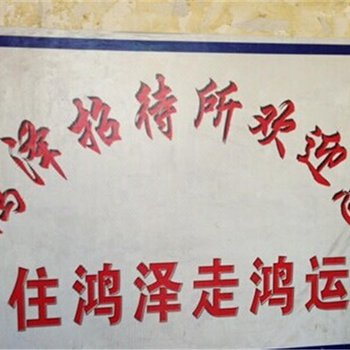 泽招待所欢迎
住鸿泽走鸿运